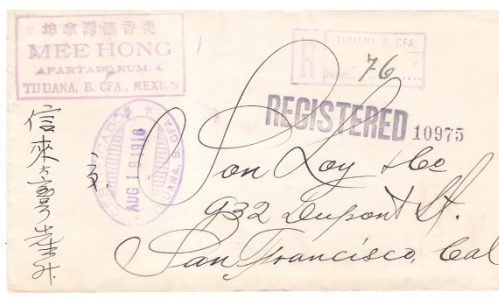 埠拿灣酒香美
MEE HONG
APARTADO NUM. 4
TIJUANA, B. CFA., MEXICO
TIJUANA, B. CFA.
R
76
REGISTERED
10975
CERTIFICADOS
AUG 19 1916
TIJUANA, B. CFA.
信來
Son Loy & Co
932 Dupont St.
San Francisco, Cal